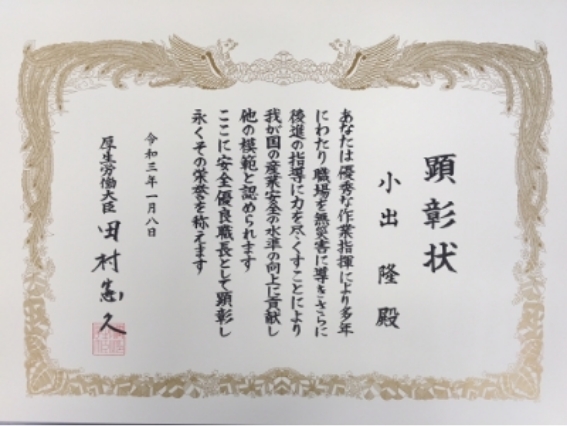 顕彰状
小出 隆 殿
あなたは優秀な作業指揮により多年
にわたり職場を無災害に導きさらに
後進の指導に力を尽くすことにより
我が国の産業安全の水準の向上に貢献し
他の模範と認められます
ここに安全優良職長として顕彰し
永くその栄誉を称えます
令和三年一月八日
厚生労働大臣 田村憲久